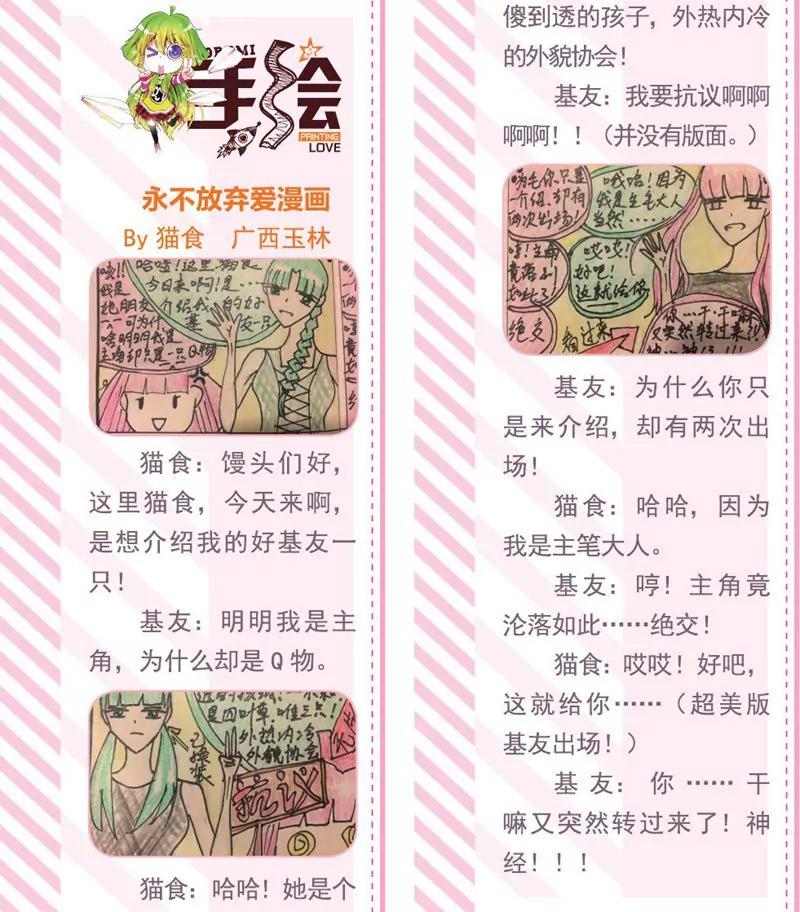 手绘
PAINTING
LOVE
永不放弃爱漫画
By 猫食 广西玉林
咳!!
我是
她朋友
哈喽!这里猫食
今日来啊!是……
介绍我的好
基友一只
一一可为什
主角却只是一只Q物
猫食：馒头们好，
这里猫食，今天来啊，
是想介绍我的好基友一
只！
基友：明明我是主
角，为什么却是 Q 物。
是四叶草.唯三只!
外热内冷
外貌协会
已换装
抗议
猫食：哈哈！她是个
傻到透的孩子，外热内冷
的外貌协会！
基友：我要抗议啊啊
啊啊！！（并没有版面。）
为毛你只是
一介绍.却有
两次出场!
哦哈!因为
我是主笔大人
当然……
哼!主角
竟落到
如此!?
哎哎!
好吧!
这就给你
绝交
转过来
你…干·干嘛
又突然转过来?!
神…神经!!!
基友：为什么你只
是来介绍，却有两次出
场！
猫食：哈哈，因为
我是主笔大人。
基友：哼！主角竟
沦落如此……绝交！
猫食：哎哎！好吧，
这就给你……（超美版
基友出场！）
基友：你……干
嘛又突然转过来了！神
经！！！